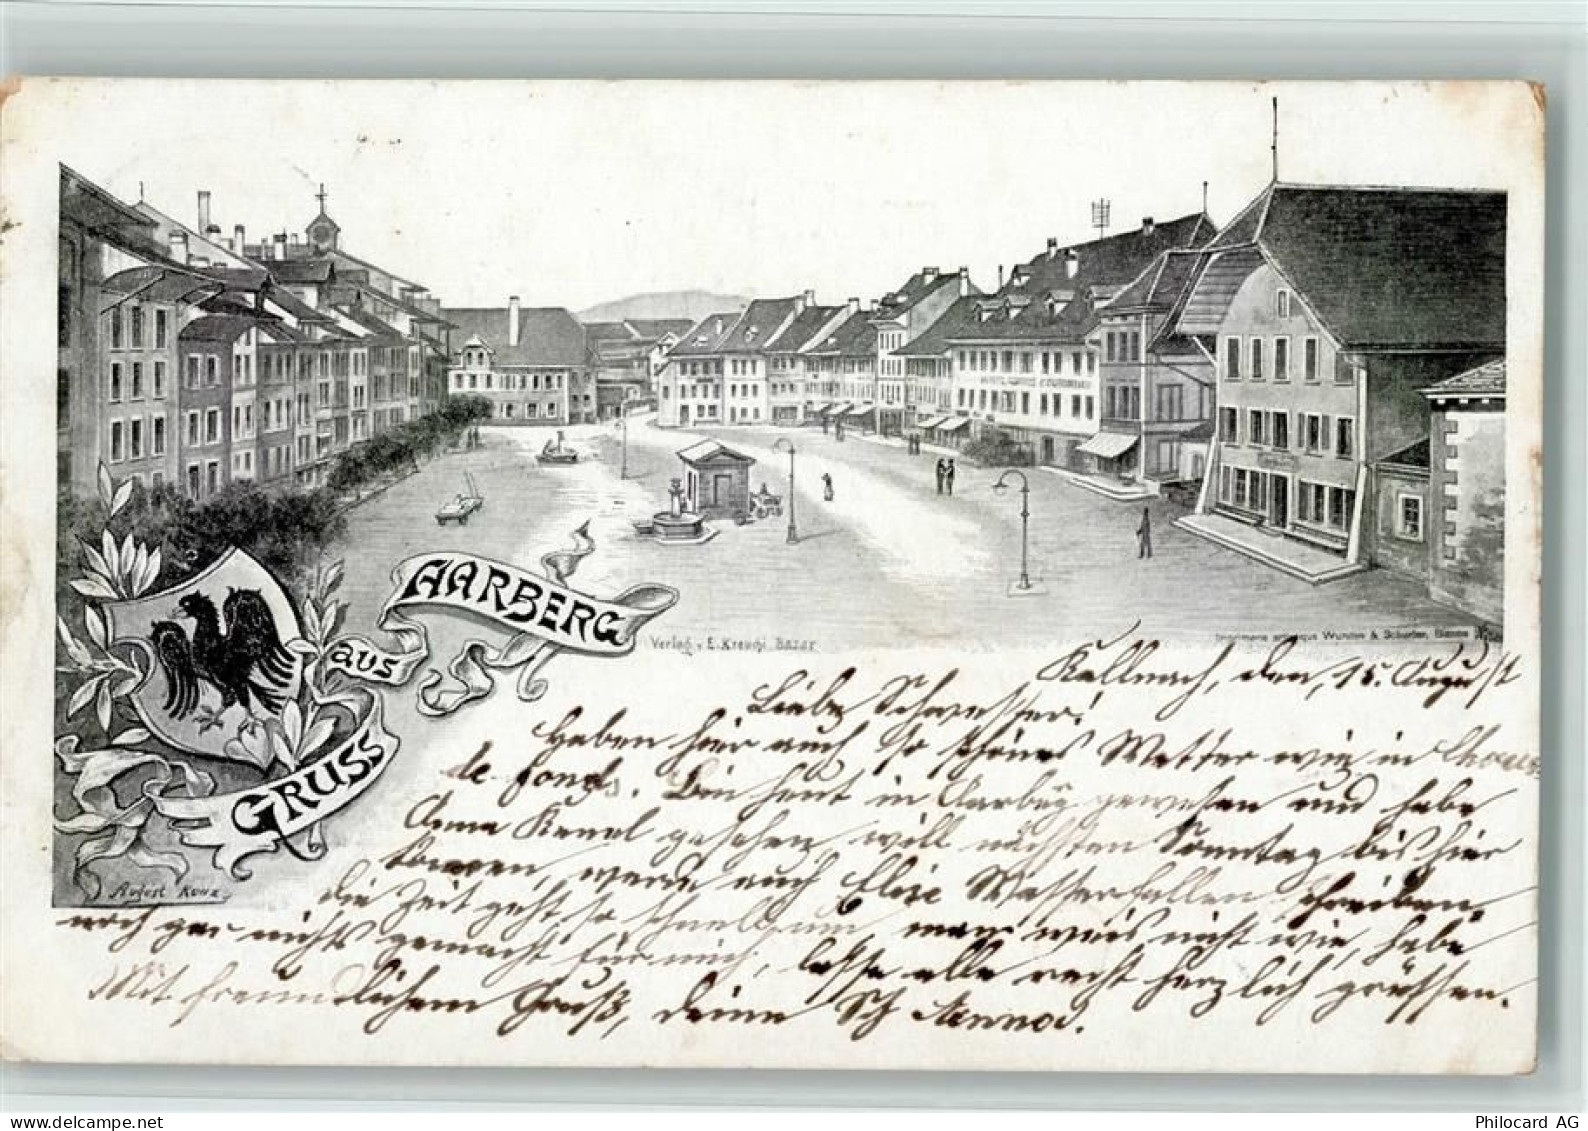 AARBERG
aus
GRUSS
August Kunz
Verlag v. E. Kreuchi Bazar
Wunden & Schurter, Bienne
Kallnach, den, 15. August
Liebe Schwester!
Haben hier auch so schönes Wetter wie in Chaux
de fonds. Bin heut in Aarberg gewesen und habe
Anna gesehen, will nächsten Sonntag bis hier
werde auch Elise Wasserfallen schreiben,
die Zeit geht so schnell um, man weis nicht wie, habe
noch gar nichts gemacht für mich, lasse alle recht herzlich grüssen.
Mit freundlichem Gruß, deine Sch Anna.
delcampe.net
Philocard AG